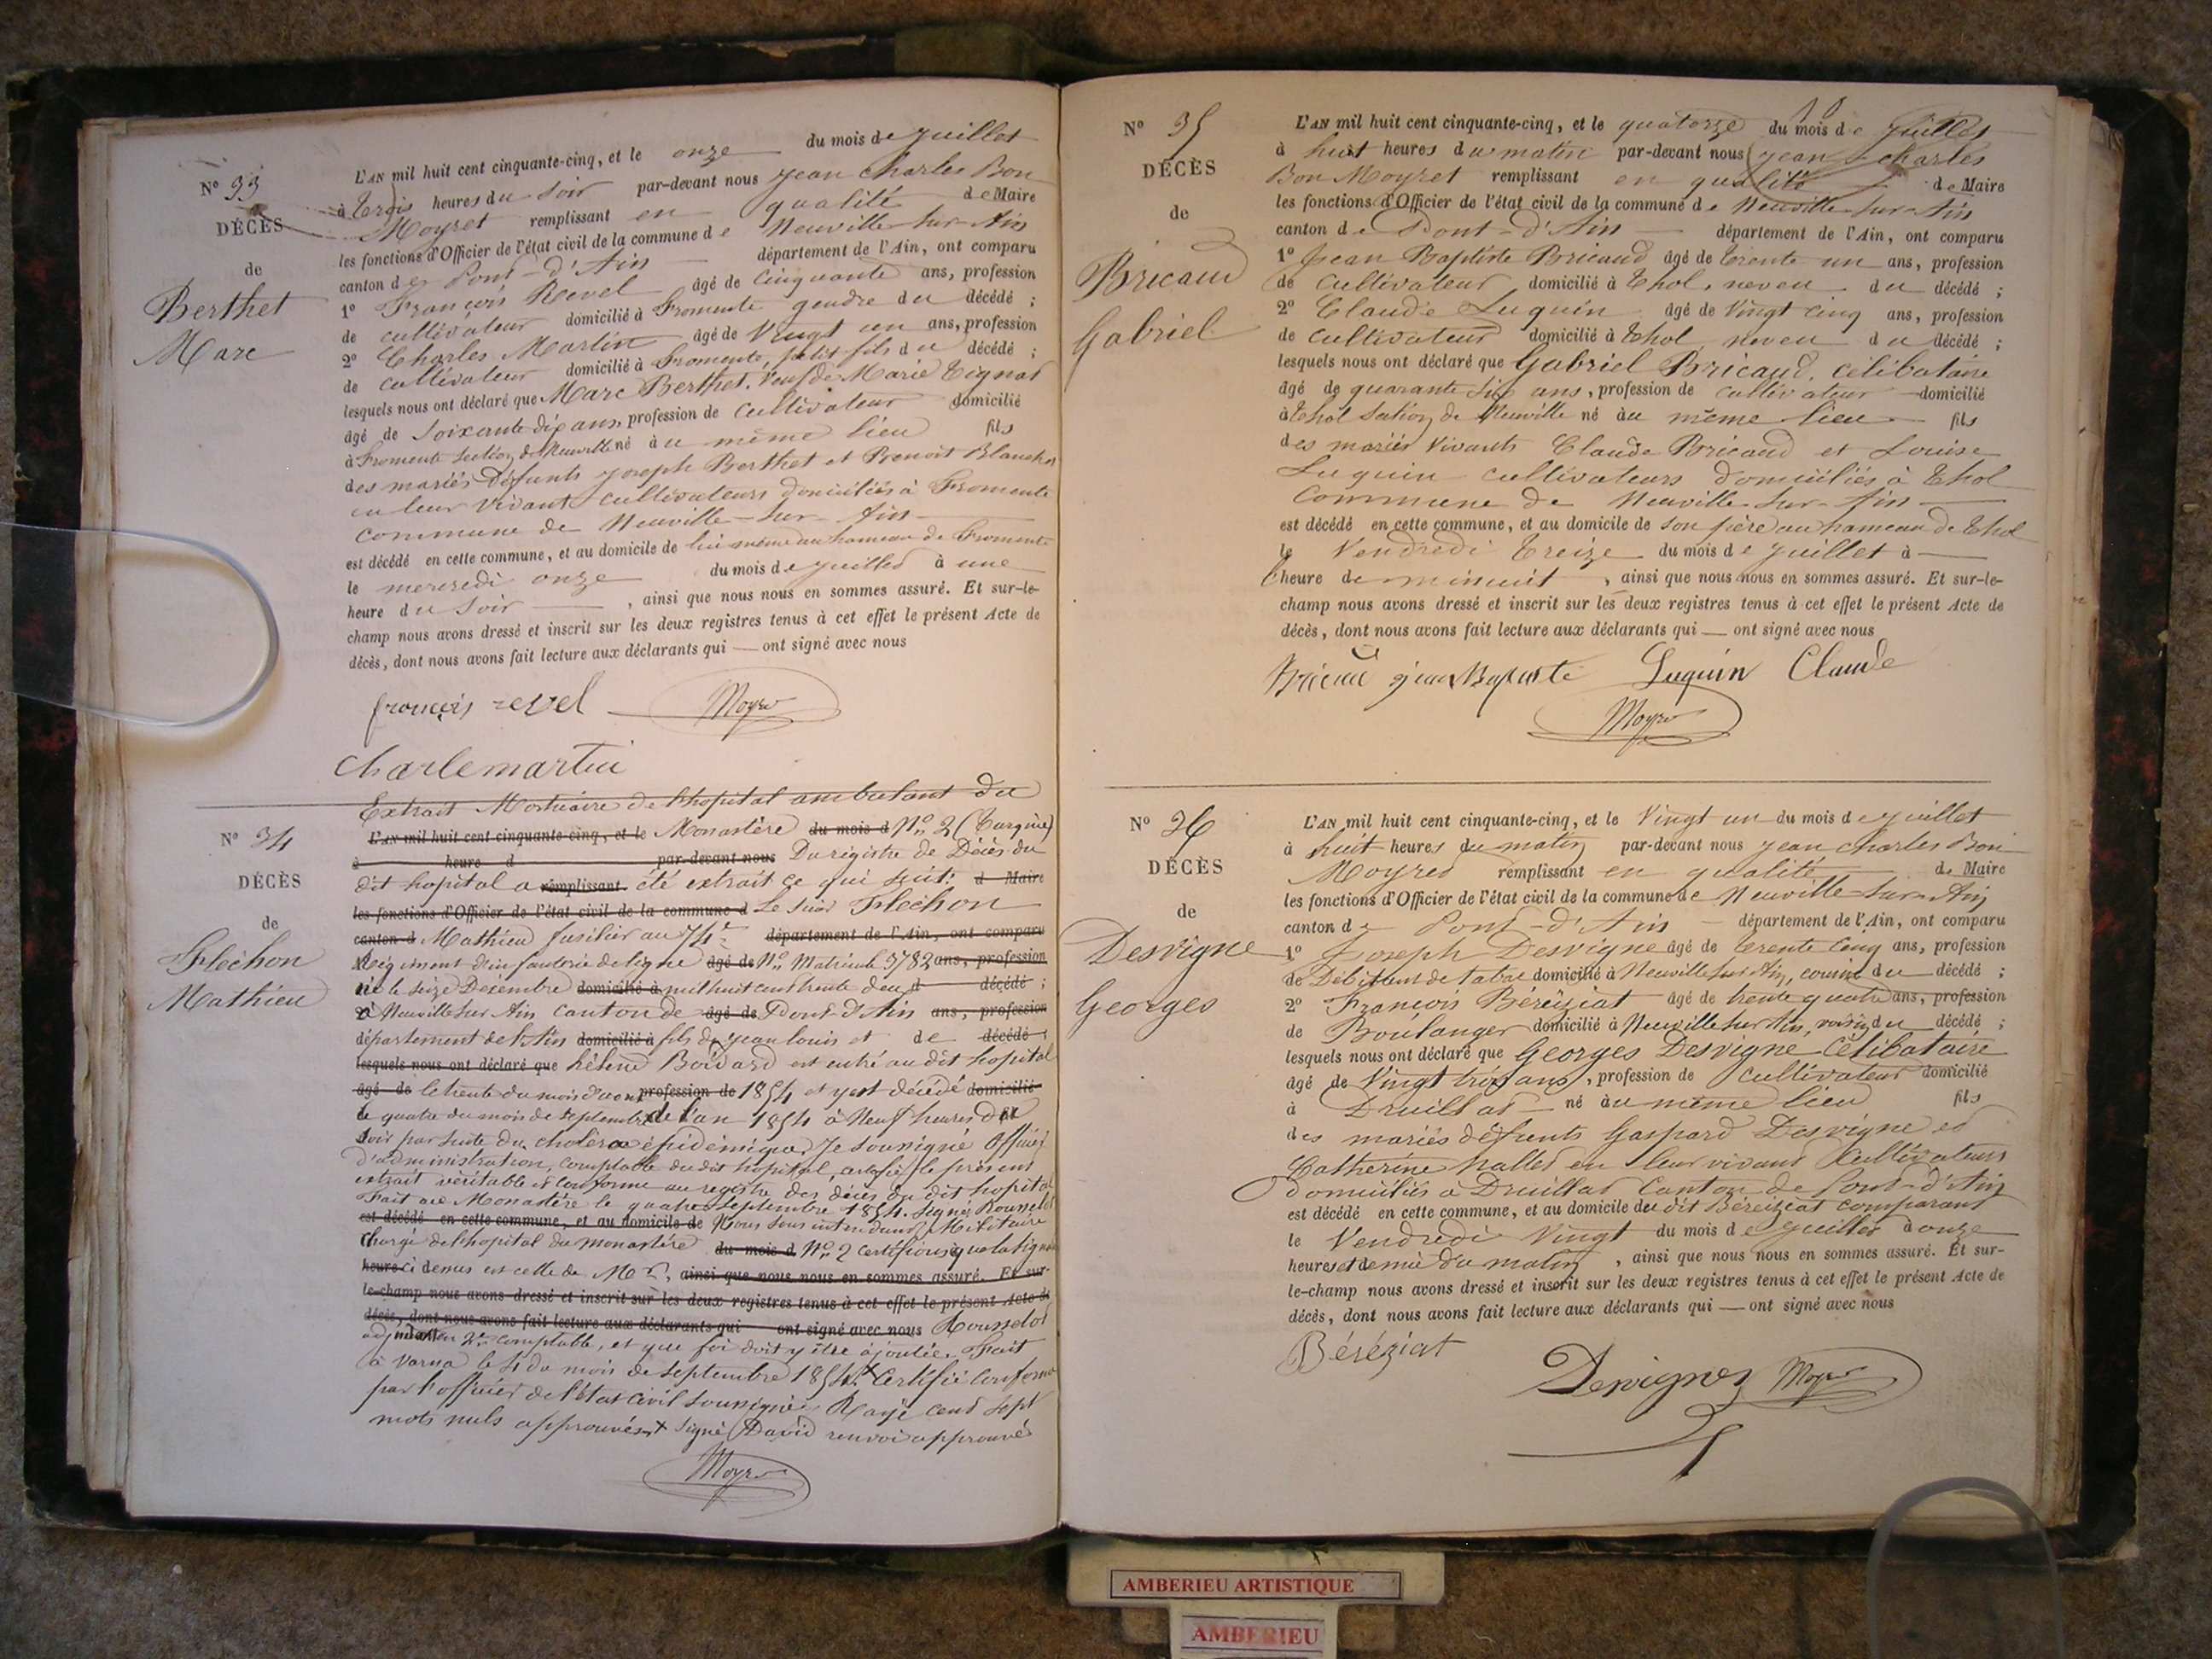 N° 33
DÉCÈS
de
Berthet
Marc
L'AN mil huit cent cinquante-cinq, et le onze du mois de juillet
à trois heures du soir par-devant nous jean charles Bon
Moyret remplissant en qualité de Maire
les fonctions d'Officier de l'état civil de la commune de Neuville-sur-Ain
canton de Pont-d'Ain département de l'Ain, ont comparu
1° François Revel âgé de cinquante ans, profession
de cultivateur domicilié à Fromente gendre du décédé ;
2° Charles Martin âgé de vingt un ans, profession
de cultivateur domicilié à Fromente, petit fils du décédé ;
lesquels nous ont déclaré que Marc Berthet, veuf de Marie Tignat
âgé de soixante dix ans, profession de cultivateur domicilié
à Fromente section de Neuville né au même lieu fils
des mariés défunts joseph Berthet et Benoit Blanchet
en leur vivant cultivateurs domiciliés à Fromente
commune de Neuville-sur-Ain
est décédé en cette commune, et au domicile de lui même au hameau de Fromente
le mercredi onze du mois de juillet à une
heure du soir, ainsi que nous nous en sommes assuré. Et sur-le-
champ nous avons dressé et inscrit sur les deux registres tenus à cet effet le présent Acte de
décès, dont nous avons fait lecture aux déclarants qui — ont signé avec nous
françois revel Moyret
Charlemartin
N° 34
DÉCÈS
de
Fléchon
Mathieu
Extrait Mortuaire de l'hopital ambulant du
L'AN mil huit cent cinquante-cinq, et le Monastère du mois d N° 2 (Turquie)
à heure d par-devant nous Du régistre de Décès du
dit hopital a remplissant été extrait ce qui suit: d Maire
les fonctions d'Officier de l'état civil de la commune d Le sieur Flechon
canton d Mathieu fusilier au 74e département de l'Ain, ont comparu
Régiment d'infanterie de ligne âgé de N° Matricule 3782 ans, profession
né le seize Décembre domicilié à mil huit cent trente deux d décédé ;
à Neuville sur Ain Canton de âgé de Pont-d'Ain ans, profession
département de l'Ain domicilié à fils de jean louis et de décédé ;
lesquels nous ont déclaré que hélène Boidard est entré au dit hopital
âgé de le trente du mois d'aout profession de 1854 et y est décédé domicilié
le quatre du mois de septembre de l'an 1854 à Neuf heures du
soir par suite du choléra épidémique, Je soussigné Officier
d'administration, comptable du dit hopital, certifie le présent
extrait véritable et conforme au registre des décès du dit hopital
Fait au Monastère le quatre septembre 1854. Signé Rousselot
est décédé en cette commune, et au domicile de Nous sous intendant Militaire
chargé de l'hopital du monastère du mois d N° 2 certifions que la signature
heure ci dessus est celle de Mr, ainsi que nous nous en sommes assuré. Et sur-
le-champ nous avons dressé et inscrit sur les deux registres tenus à cet effet le présent Acte de
décès, dont nous avons fait lecture aux déclarants qui ont signé avec nous Rousselot
adjudant en 2d comptable, et que foi doit y être ajoutée. Fait
à Varna le 4 du mois de septembre 1854.+ Certifié conforme
par l'officier de l'état civil soussigné. Rayé cent sept
mots nuls approuvés + signé David renvoi approuvé
Moyret
N° 35
DÉCÈS
de
Bricaud
Gabriel
18
L'AN mil huit cent cinquante-cinq, et le quatorze du mois de juillet
à huit heures du matin par-devant nous jean charles
Bon Moyret remplissant en qualité de Maire
les fonctions d'Officier de l'état civil de la commune de Neuville-sur-Ain
canton de Pont-d'Ain département de l'Ain, ont comparu
1° Jean Baptiste Bricaud âgé de trente un ans, profession
de cultivateur domicilié à Thol, neveu du décédé ;
2° Claude Luquin âgé de vingt cinq ans, profession
de cultivateur domicilié à Thol neveu du décédé ;
lesquels nous ont déclaré que Gabriel Bricaud, célibataire
âgé de quarante six ans, profession de cultivateur domicilié
à Thol section de Neuville né au même lieu fils
des mariés vivants Claude Bricaud et Louise
Luquin cultivateurs domiciliés à Thol
commune de Neuville-sur-Ain
est décédé en cette commune, et au domicile de son père au hameau de Thol
le vendredi treize du mois de juillet à
l'heure de minuit, ainsi que nous nous en sommes assuré. Et sur-le-
champ nous avons dressé et inscrit sur les deux registres tenus à cet effet le présent Acte de
décès, dont nous avons fait lecture aux déclarants qui — ont signé avec nous
Bricaud jean Baptiste Luquin Claude
Moyret
N° 36
DÉCÈS
de
Desvigne
Georges
L'AN mil huit cent cinquante-cinq, et le vingt un du mois de juillet
à huit heures du matin par-devant nous jean charles Bon
Moyret remplissant en qualité de Maire
les fonctions d'Officier de l'état civil de la commune de Neuville-sur-Ain
canton de Pont-d'Ain département de l'Ain, ont comparu
1° Joseph Desvigne âgé de trente cinq ans, profession
de Débitant de tabac domicilié à Neuville sur Ain, cousin du décédé ;
2° François Béréziat âgé de trente quatre ans, profession
de Boulanger domicilié à Neuville sur Ain, voisin du décédé ;
lesquels nous ont déclaré que Georges Desvigne célibataire
âgé de vingt trois ans, profession de cultivateur domicilié
à Druillat né au même lieu fils
des mariés défunts Gaspard Desvigne et
Catherine hallet en leur vivant cultivateurs
domiciliés à Druillat Canton de Pont-d'Ain
est décédé en cette commune, et au domicile du dit Béréziat comparant
le vendredi vingt du mois de juillet à onze
heures et demie du matin, ainsi que nous nous en sommes assuré. Et sur-
le-champ nous avons dressé et inscrit sur les deux registres tenus à cet effet le présent Acte de
décès, dont nous avons fait lecture aux déclarants qui — ont signé avec nous
Béréziat
Desvignes Moyret
AMBERIEU ARTISTIQUE
AMBERIEU